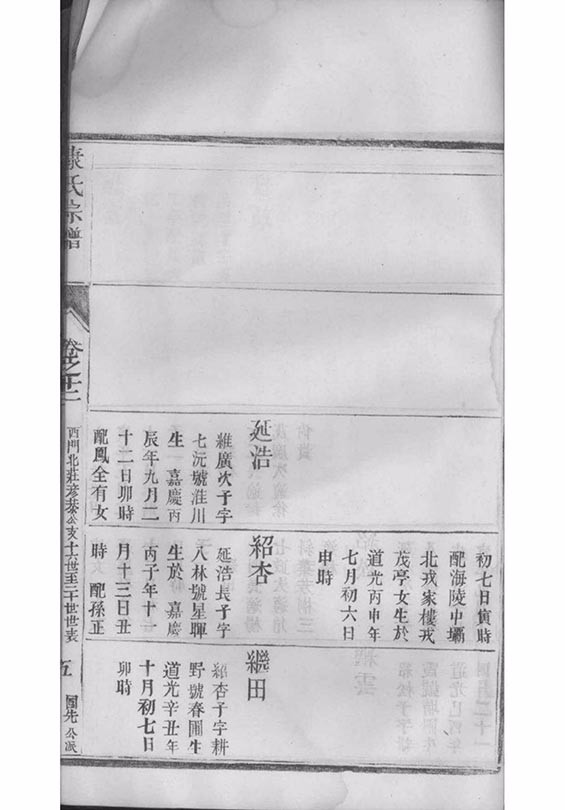 延浩
維廣次子字
七沅號淮川
生 嘉慶丙
辰年九月二
十二日卯時
配鳳全有女
初七日寅時
配海陵中壩
北戎家樓戎
茂亭女生於
道光丙申年
七月初六日
申時
紹杏
延浩長子字
八林號星暉
生於 嘉慶
丙子年十一
月十三日丑
時 配孫正
繼田
紹杏子字耕
野號春圃生
道光辛丑年
十月初七日
卯時
氏宗譜
卷之十二
西門北莊彥恭公亥十六世至二十世世表
五
公派